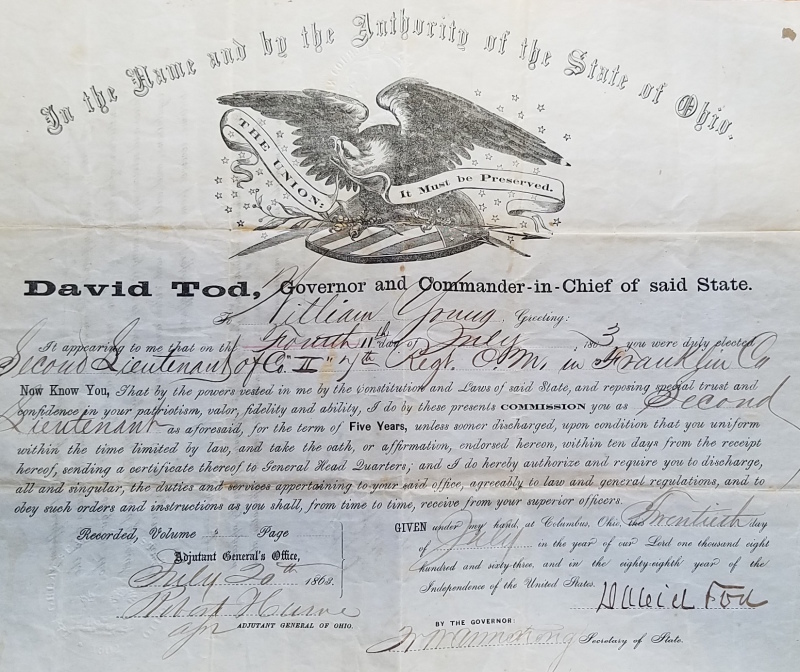 In the Name and by the Authority of the State of Ohio.
THE UNION:
It Must be Preserved.
David Tod, Governor and Commander-in-Chief of said State.
To William Young Greeting:
It appearing to me that on the Fourth 11th day of July, 1863 you were duly elected
Second Lieutenant of Co. "I" 7th Regt. O.M. in Franklin Co
Now Know You, That by the powers vested in me by the Constitution and Laws of said State, and reposing special trust and
confidence in your patriotism, valor, fidelity and ability, I do by these presents COMMISSION you as Second
Lieutenant as aforesaid, for the term of Five Years, unless sooner discharged, upon condition that you uniform
within the time limited by law, and take the oath, or affirmation, endorsed hereon, within ten days from the receipt
hereof, sending a certificate thereof to General Head Quarters; and I do hereby authorize and require you to discharge,
all and singular, the duties and services appertaining to your said office, agreeably to law and general regulations, and to
obey such orders and instructions as you shall, from time to time, receive from your superior officers.
Recorded, Volume Page
Adjutant General's Office,
July 20th 1863.
ADJUTANT GENERAL OF OHIO.
GIVEN under my hand, at Columbus, Ohio, this Twentieth day
of July in the year of our Lord one thousand eight
hundred and sixty-three, and in the eighty-eighth year of the
Independence of the United States.
David Tod
BY THE GOVERNOR:
Secretary of State.